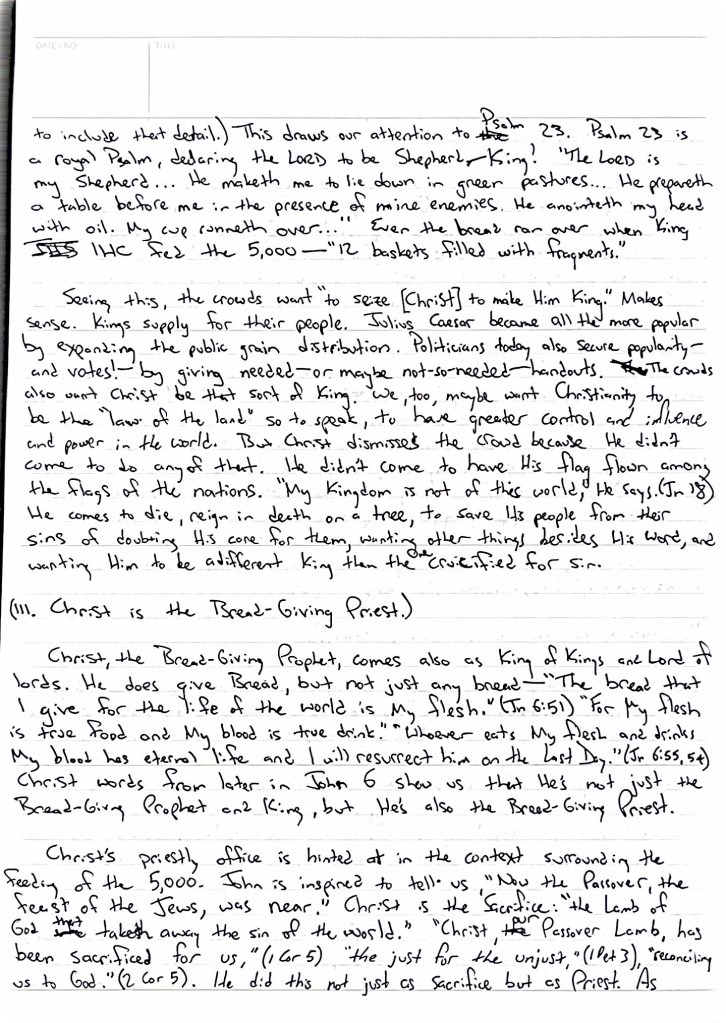 DATE • NO
TITLE
to include that detail.) This draws our attention to Psalm 23. Psalm 23 is
a royal Psalm, declaring the LORD to be Shepherd-King! "The LORD is
my Shepherd... He maketh me to lie down in green pastures... He prepareth
a table before me in the presence of mine enemies. He anointeth my head
with oil. My cup runneth over..." Even the bread ran over when King
IHC fed the 5,000—"12 baskets filled with fragments."
Seeing this, the crowds want "to seize [Christ] to make Him King." Makes
sense. Kings supply for their people. Julius Caesar became all the more popular
by expanding the public grain distribution. Politicians today also secure popularity—
and votes!—by giving needed—or maybe not-so-needed—handouts. The crowds
also want Christ be that sort of King. We, too, maybe want Christianity to
be the "law of the land" so to speak, to have greater control and influence
and power in the world. But Christ dismisses the crowd because He didn't
come to do any of that. He didn't come to have His flag flown among
the flags of the nations. "My Kingdom is not of this world," He says. (Jn 18)
He comes to die, reign in death on a tree, to save His people from their
sins of doubting His care for them, wanting other things besides His Word, and
wanting Him to be a different King than the One crucified for sin.
(III. Christ is the Bread-Giving Priest.)
Christ, the Bread-Giving Prophet, comes also as King of Kings and Lord of
lords. He does give Bread, but not just any bread—"The bread that
I give for the life of the world is My flesh." (Jn 6:51) "For My flesh
is true food and My blood is true drink." "Whoever eats My flesh and drinks
My blood has eternal life and I will resurrect him on the Last Day." (Jn 6:55, 54)
Christ words from later in John 6 show us that He's not just the
Bread-Giving Prophet and King, but He's also the Bread-Giving Priest.
Christ's priestly office is hinted at in the context surrounding the
feeding of the 5,000. John is inspired to tell us, "Now the Passover, the
feast of the Jews, was near." Christ is the Sacrifice: "the Lamb of
God taketh away the sin of the world." "Christ, our Passover Lamb, has
been sacrificed for us," (1 Cor 5) "the just for the unjust," (1 Pet 3), "reconciling
us to God." (2 Cor 5). He did this not just as sacrifice but as Priest. As